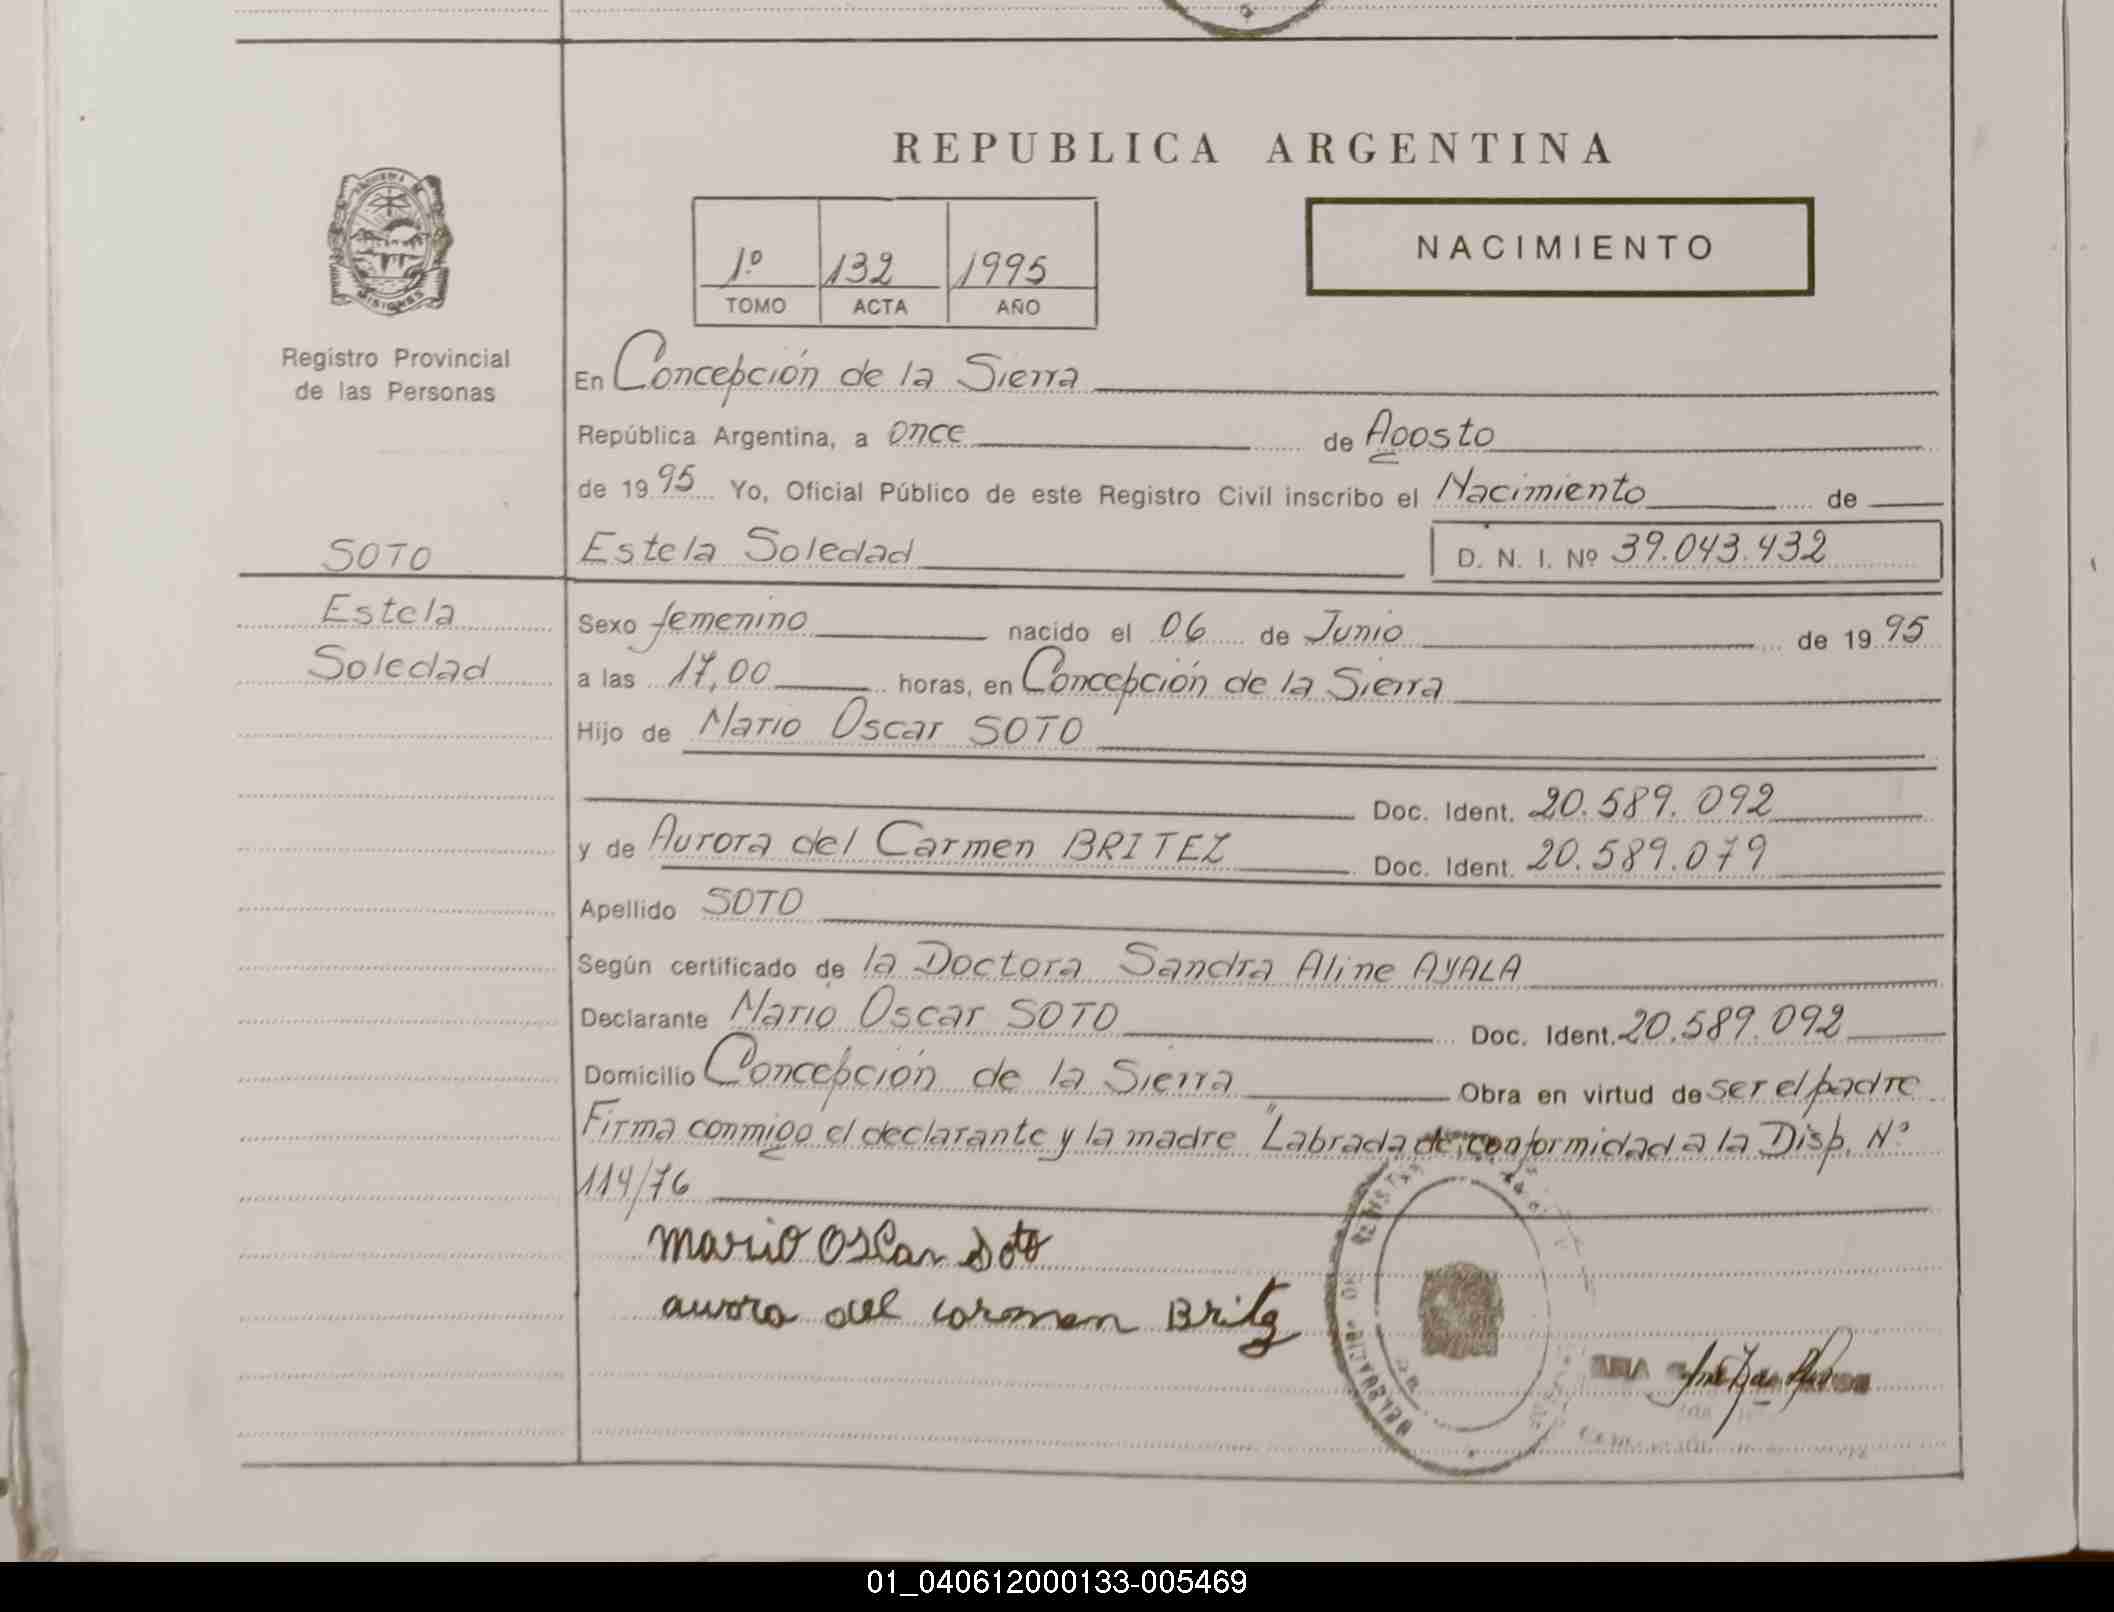 REPUBLICA ARGENTINA
1º 132 1995
TOMO ACTA AÑO
NACIMIENTO
MISIONES
Registro Provincial
de las Personas
SOTO
Estela
Soledad
En Concepción de la Sierra
República Argentina, a once de Agosto
de 1995 Yo, Oficial Público de este Registro Civil inscribo el Nacimiento de
Estela Soledad D. N. I. Nº 39.043.432
Sexo femenino nacido el 06 de Junio de 1995
a las 17,00 horas, en Concepción de la Sierra
Hijo de Mario Oscar SOTO
Doc. Ident. 20.589.092
y de Aurora del Carmen BRITEZ Doc. Ident. 20.589.079
Apellido SOTO
Según certificado de la Doctora Sandra Aline AYALA
Declarante Mario Oscar SOTO Doc. Ident. 20.589.092
Domicilio Concepción de la Sierra Obra en virtud de ser el padre
Firma conmigo el declarante y la madre "Labrada de conformidad a la Disp. Nº
114/76
mario Oscar Soto
aurora del carmen Britez
01_040612000133-005469